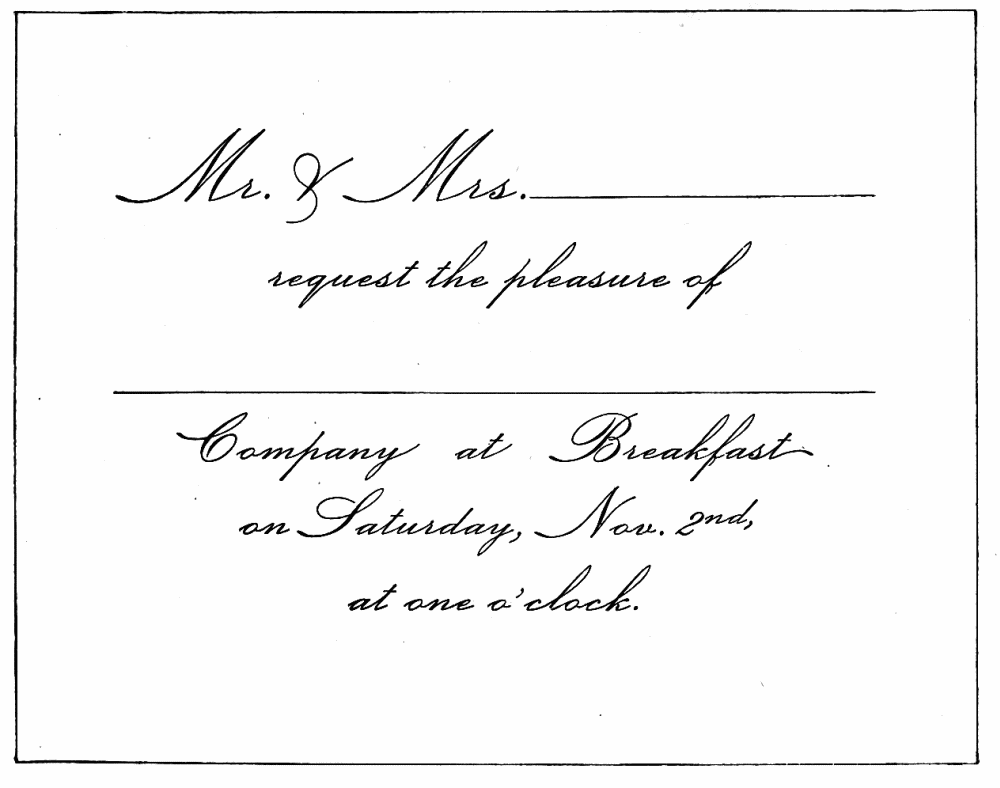 Mr. & Mrs.
request the pleasure of
Company at Breakfast
on Saturday, Nov. 2nd,
at one o'clock.